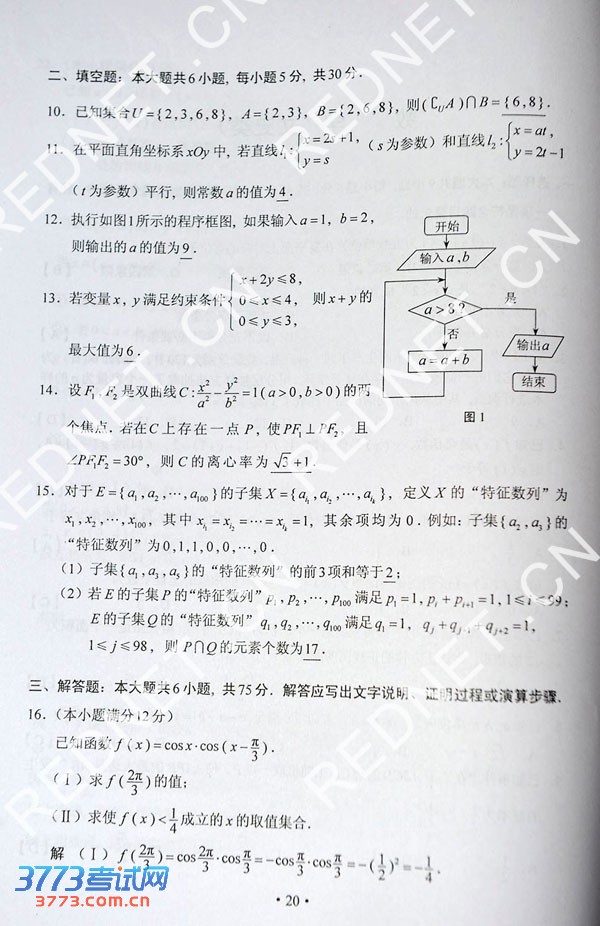 二、填空题：本大题共6小题，每小题5分，共30分．
10．已知集合U={2,3,6,8}，A={2,3}，B={2,6,8}，则(∁UA)∩B={6,8}．
11．在平面直角坐标系xOy中，若直线l₁:{x=2s+1, y=s (s为参数)和直线l₂:{x=at, y=2t-1
(t为参数)平行，则常数a的值为4．
12．执行如图1所示的程序框图，如果输入a=1，b=2，
则输出的a的值为9．
13．若变量x，y满足约束条件{x+2y≤8, 0≤x≤4, 0≤y≤3, 则x+y的
最大值为6．
14．设F₁，F₂是双曲线C:x²/a²-y²/b²=1(a>0,b>0)的两
个焦点．若在C上存在一点P，使PF₁⊥PF₂，且
∠PF₁F₂=30°，则C的离心率为√3+1．
开始
输入a,b
a>8?
是
否
a=a+b
输出a
结束
图1
15．对于E={a₁,a₂,⋯,a₁₀₀}的子集X={aᵢ₁,aᵢ₂,⋯,aᵢₖ}，定义X的“特征数列”为
x₁,x₂,⋯,x₁₀₀，其中xᵢ₁=xᵢ₂=⋯=xᵢₖ=1，其余项均为0．例如：子集{a₂,a₃}的
“特征数列”为0,1,1,0,0,⋯,0．
(1)子集{a₁,a₃,a₅}的“特征数列”的前3项和等于2；
(2)若E的子集P的“特征数列”p₁,p₂,⋯,p₁₀₀满足p₁=1,pᵢ+pᵢ₊₁=1,1≤i≤99；
E的子集Q的“特征数列”q₁,q₂,⋯,q₁₀₀满足q₁=1，qⱼ+qⱼ₊₁+qⱼ₊₂=1，
1≤j≤98，则P∩Q的元素个数为17．
三、解答题：本大题共6小题，共75分．解答应写出文字说明、证明过程或演算步骤．
16．(本小题满分12分)
已知函数f(x)=cosx·cos(x-π/3)．
(Ⅰ)求f(2π/3)的值；
(Ⅱ)求使f(x)<1/4成立的x的取值集合．
解 (Ⅰ) f(2π/3)=cos2π/3·cosπ/3=-cosπ/3·cosπ/3=-(1/2)²=-1/4．
·20·
3773考试网
3773.com.cn
REDNET.CN
REDNET.CN
REDNET.CN
REDNET.CN